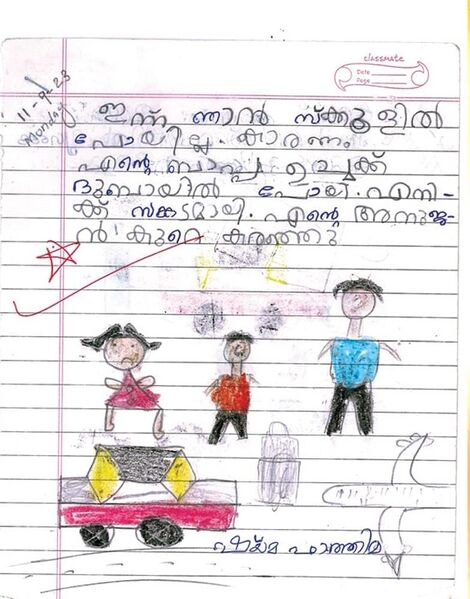 classmate
Date
Page
11-9-23
Monday
ഇന്ന് ഞാൻ സ്ക്കൂളിൽ
പോയില്ല. കാരണം
എന്റെ ബാപ്പ ഉച്ചക്ക്
ദുബായിൽ പോയി. എനി-
ക്ക് സങ്കടമായി. എന്റെ അനുജ-
ൻ കുറെ കരഞ്ഞു
ഫാത്തിമ